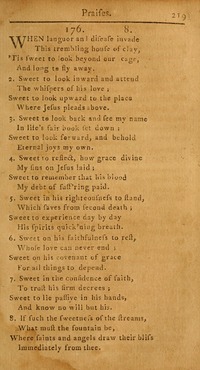 Praises. 219
176. 8.
WHEN languor and disease invade
This trembling house of clay,
'Tis sweet to look beyond our cage,
And long to fly away.
2. Sweet to look inward and attend
The whispers of his love;
Sweet to look upward to the place
Where Jesus pleads above.
3. Sweet to look back and see my name
In life's fair book set down;
Sweet to look forward, and behold
Eternal joys my own.
4. Sweet to reflect, how grace divine
My sins on Jesus laid;
Sweet to remember that his blood
My debt of suff'ring paid.
5. Sweet in his righteousness to stand,
Which saves from second death;
Sweet to experience day by day
His spirits quick'ning breath.
6. Sweet on his faithfulness to rest,
Whose love can never end;
Sweet on his covenant of grace
For all things to depend.
7. Sweet in the confidence of faith,
To trust his firm decrees;
Sweet to lie passive in his hands,
And know no will but his.
8. If such the sweetness of the streams,
What must the fountain be,
Where saints and angels draw their bliss
Immediately from thee.